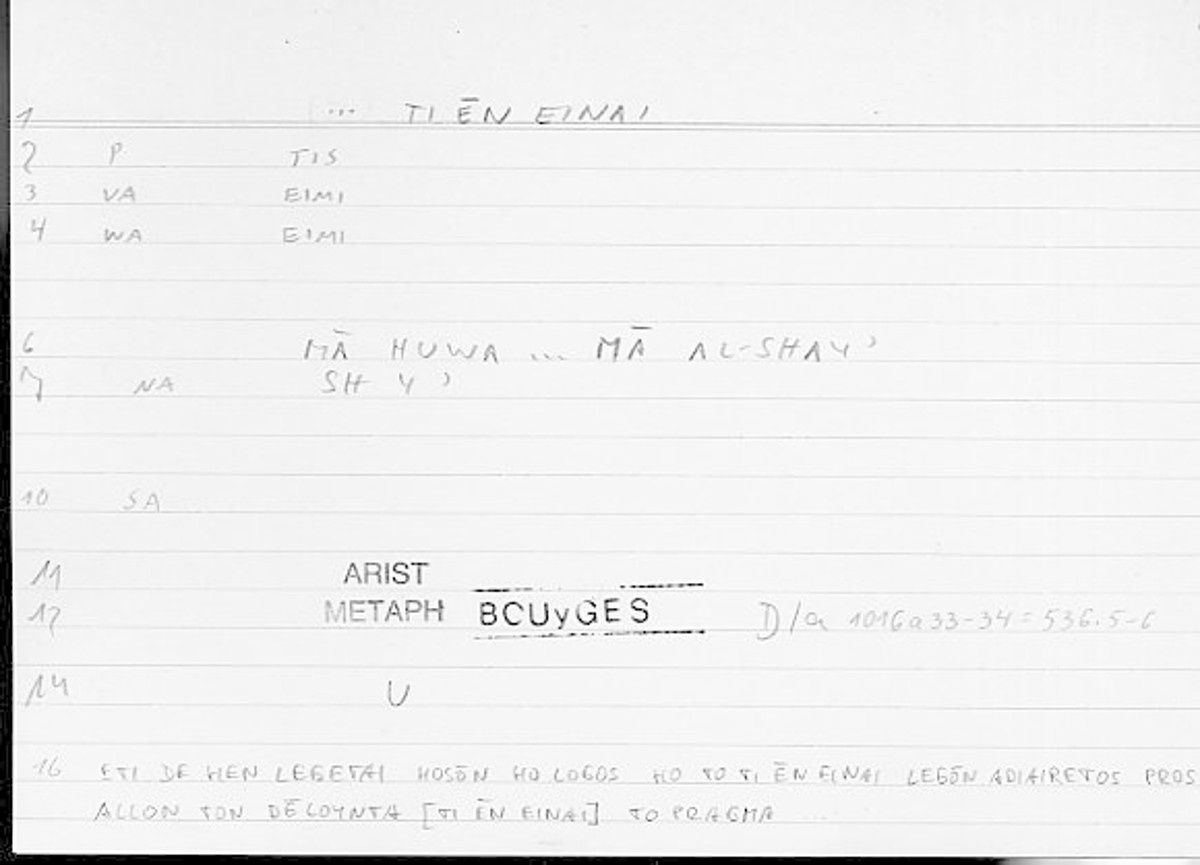 1 ... TI ĒN EINAI
2 P TIS
3 VA EIMI
4 WA EIMI
6 MĀ HUWA ... MĀ AL-SHAY'
7 NA SH Y '
10 SA
11 ARIST
12 METAPH BCUyGES D/a 1016a33-34=536.5-6
14 U
16 ETI DE HEN LEGETAI HOSŌN HO LOGOS HO TO TI ĒN EINAI LEGŌN ADIAIRETOS PROS
ALLON TON DĒLOYNTA [TI ĒN EINAI] TO PRAGMA ...